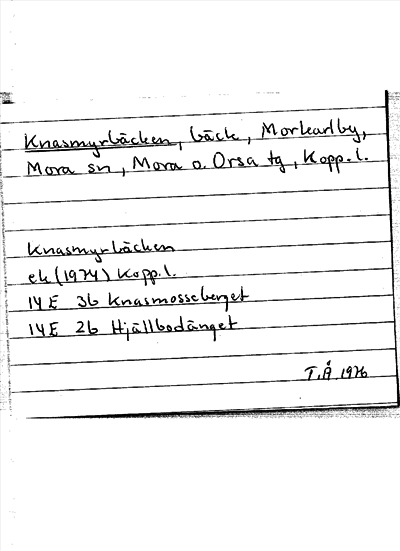 Knasmyrbäcken, bäck, Morkarlby,
Mora sn, Mora o. Orsa tg, Kopp. l.
Knasmyrbäcken
ek (1974) Kopp. l.
14E 3b Knasmosseberget
14E 2b Hjällbodänget
T.Å. 1976